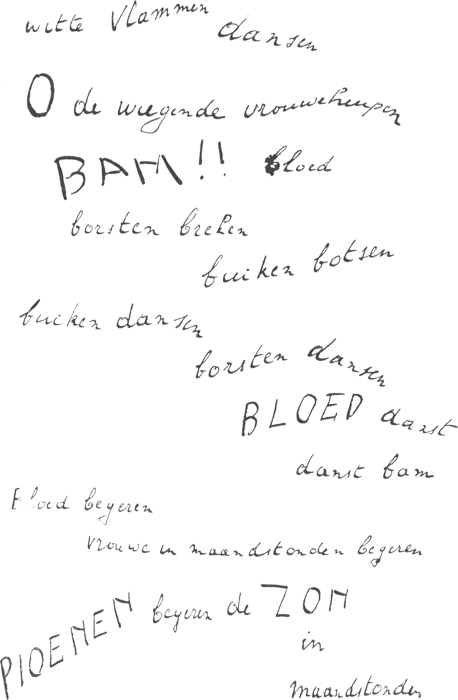 witte vlammen dansen
O de wiegende vrouweheupen
BAM!! bloed
borsten breken
buiken botsen
buiken dansen
borsten dansen
BLOED danst
danst bam
Bloed begeren
vrouwe in maandstonden begeren
PIOENEN begeren de ZON
in
maandstonden